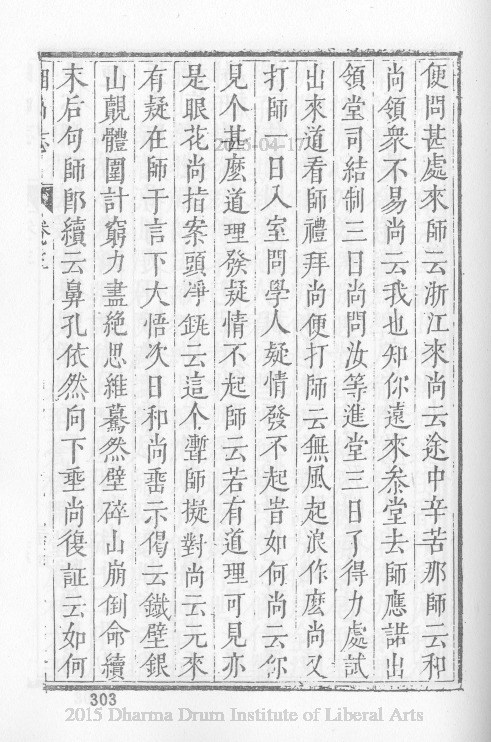 便問甚處來師云浙江來尚云途中辛苦那師云和
尚領衆不易尚云我也知你遠來叅堂去師應諾出
領堂司結制三日尚問汝等進堂三日了得力處試
出來道看師禮拜尚便打師云無風起浪作麽尚又
打師一日入室問學人疑情發不起旹如何尚云你
見个甚麽道理發疑情不起師云若有道理可見亦
是眼花尚指案頭凈瓶云這个聻師擬對尚云元來
有疑在師于言下大悟次日和尚垂示偈云鐵壁銀
山覿體圍計窮力盡絶思維驀然壁碎山崩倒命續
末后句師即續云鼻孔依然向下垂尚復証云如何
卷三
303
2015-04-17
2015 Dharma Drum Institute of Liberal Arts